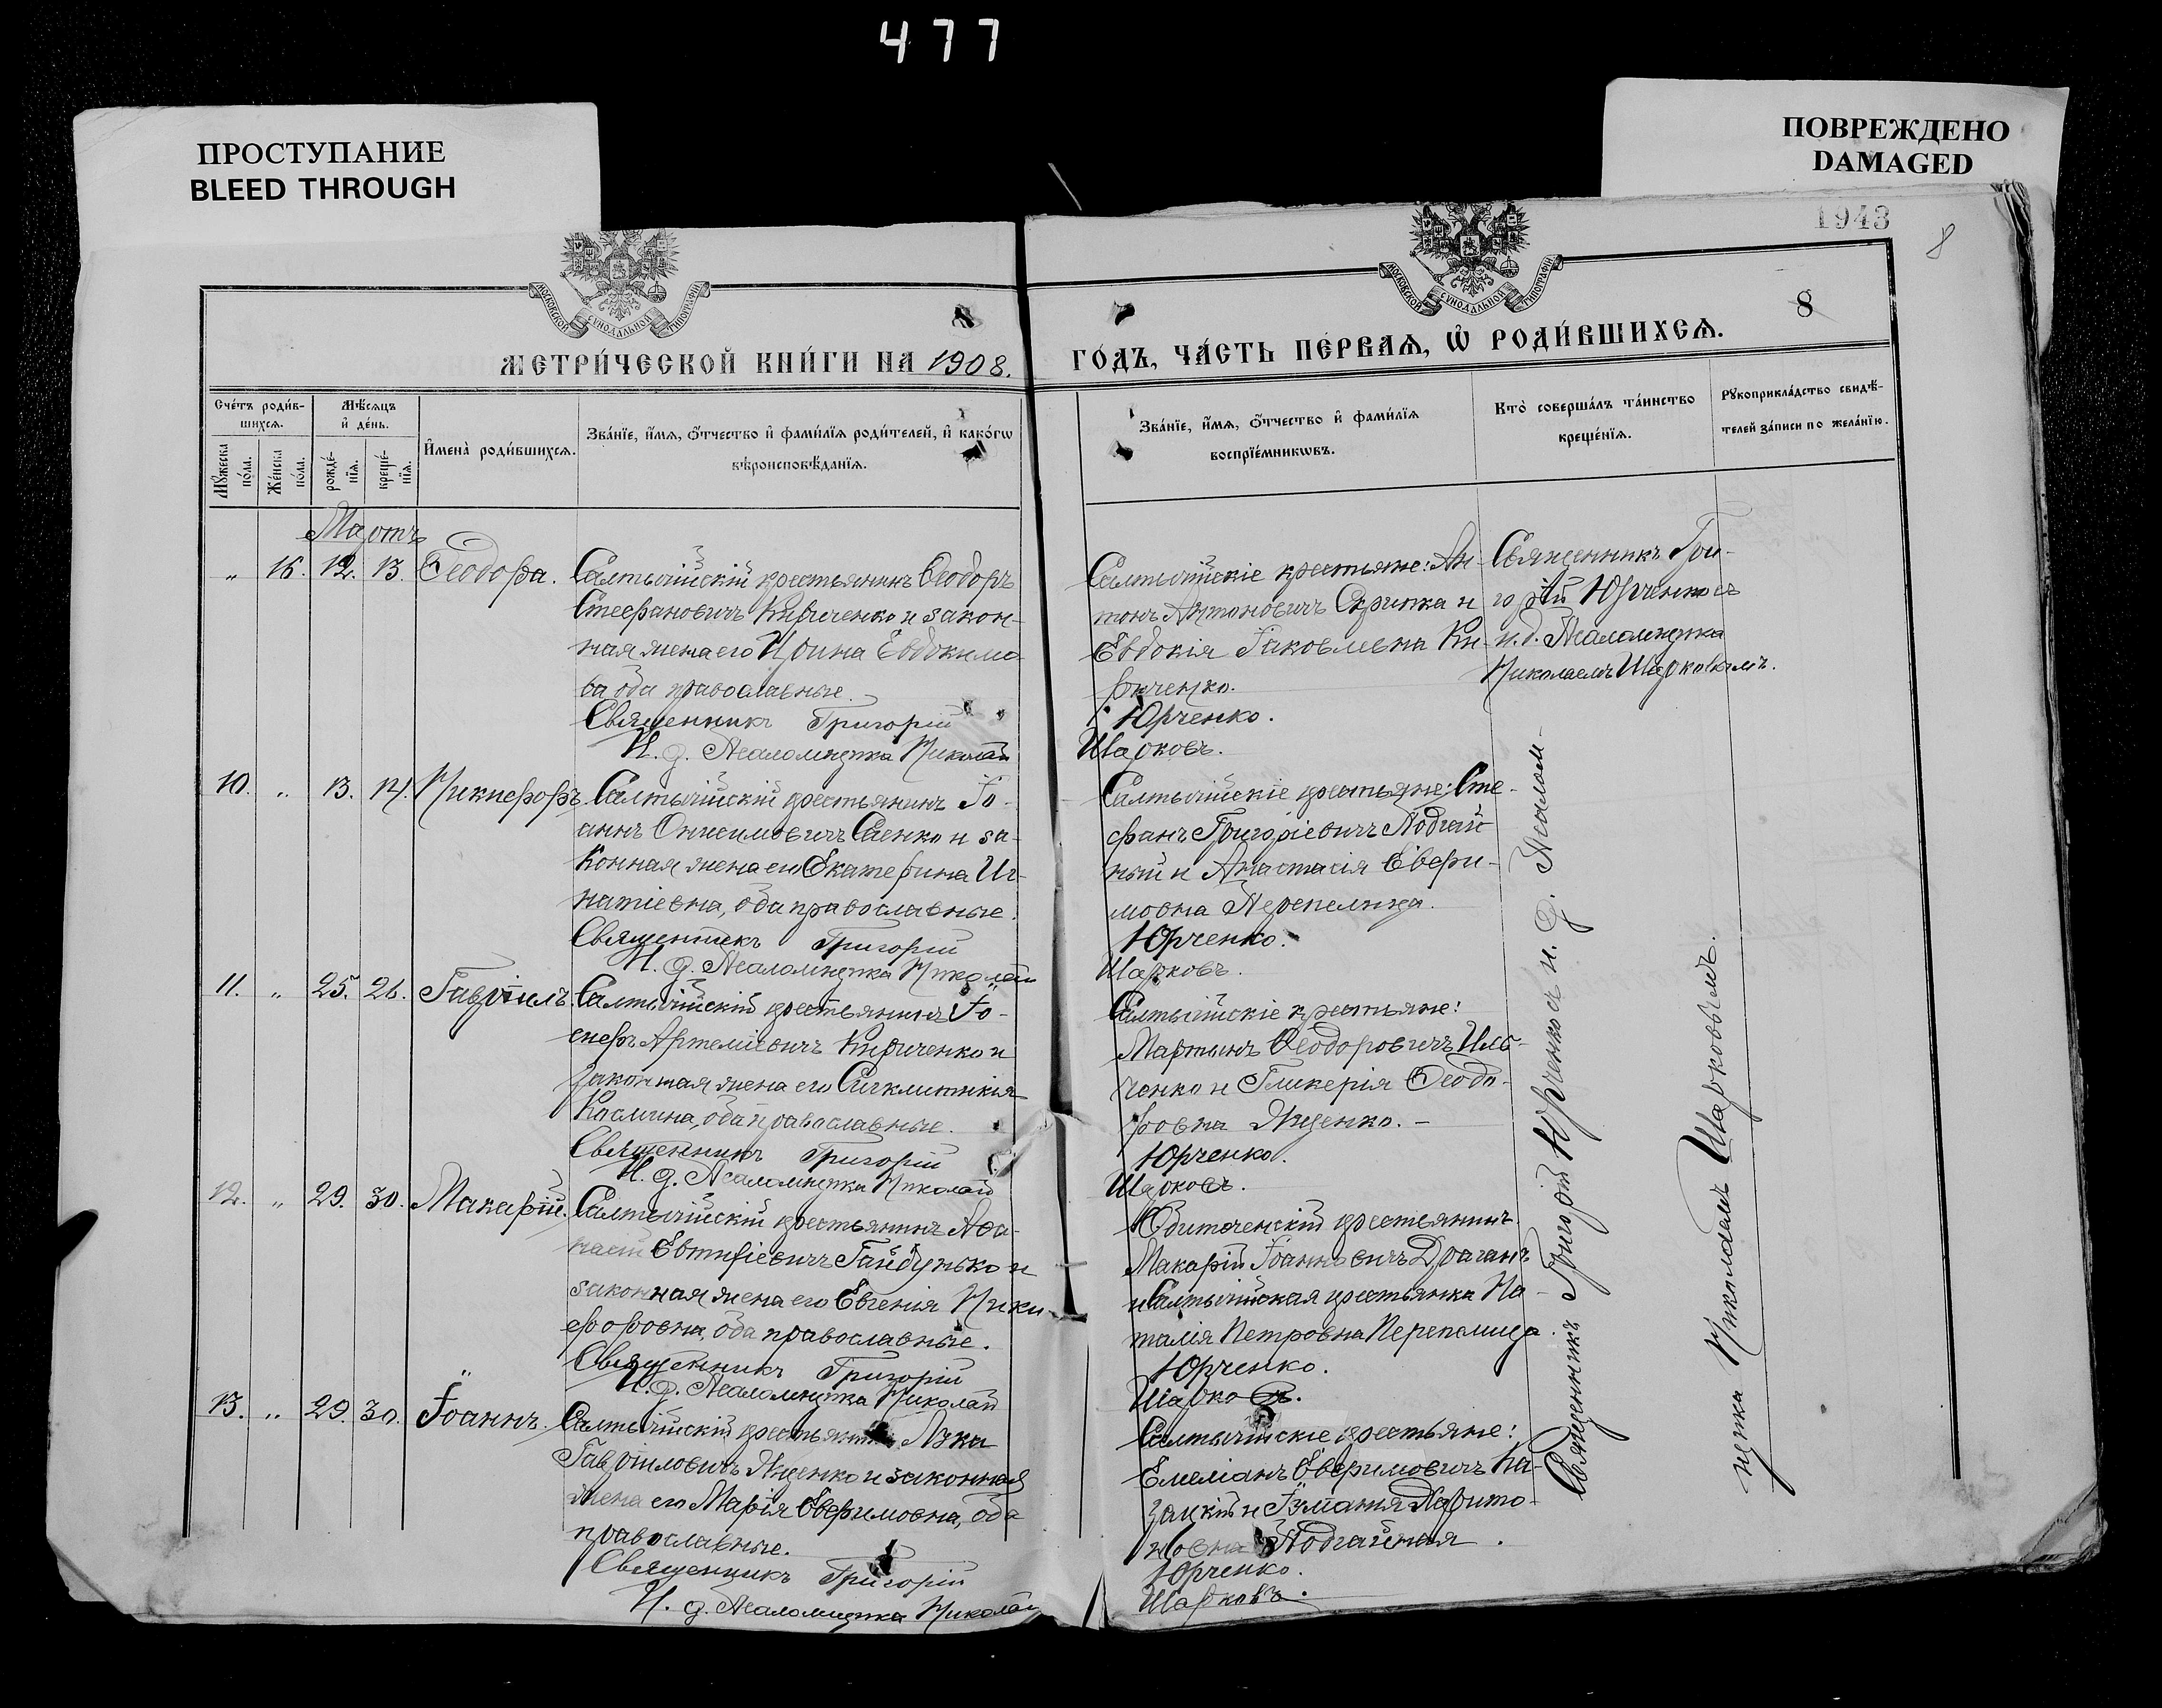 477
ПРОСТУПАНИЕ
BLEED THROUGH
ПОВРЕЖДЕНО
DAMAGED
1943
8
8
МОСКОВСКОЙ СѴНОДАЛЬНОЙ ТИПОГРАФІИ
МОСКОВСКОЙ СѴНОДАЛЬНОЙ ТИПОГРАФІИ
МЕТРИ́ЧЕСКОЙ КНИ́ГИ НА 1908.
ГО́ДЪ, ЧА́СТЬ ПЕ́РВАѦ, Ѡ҆ РОДИ́ВШИХСѦ.
Сче́тъ роди́в-
шихсѧ.
Мꙋ́жеска по́ла.
Же́нска по́ла.
Мѣ́сѧцъ
и҆ де́нь.
рожде́-
нїѧ.
креще́-
нїѧ.
И҆мена̀ роди́вшихсѧ.
Зва́нїе, и҆́мѧ, ѻ҆́тчество и҆ фами́лїѧ роди́телей, и҆ како́гѡ
вѣроисповѣ́данїѧ.
Зва́нїе, и҆́мѧ, ѻ҆́тчество и҆ фами́лїѧ
воспрїе́мникѡвъ.
Кто̀ соверша́лъ та́инство
креще́нїѧ.
Рꙋкоприкла́дство свидѣ́-
телей за́писи по жела́нїю.
Мартъ
" 16. 12. 13. Ѳеодора.
Салтычійскій крестьянинъ Ѳеодоръ
Стефановичъ Кириченко и закон-
ная жена его Ирина Евдокимо-
ва оба православные.
Священникъ Григорій
И. д. Псаломщика Николай
Салтычійскіе крестьяне: Ан-
тонъ Антоновичъ Скрипка и
Евдокія Іаковлевна Ки-
риченко.
Юрченко.
Шарковъ.
Священникъ Гри-
горій Юрченко съ
и. д. Псаломщика
Николаемъ Шарковымъ.
10. " 13. 14. Никифоръ.
Салтычійскій крестьянинъ Іо-
аннъ Онисимовичъ Саенко и за-
конная жена его Екатерина Иг-
натіевна, оба православные.
Священникъ Григорій
И. д. Псаломщика Николай
Салтычійскіе крестьяне: Сте-
фанъ Григоріевичъ Подгай-
ный и Анастасія Евфи-
мовна Перепелица.
Юрченко.
Шарковъ.
11. " 25. 26. Гавріилъ.
Салтычійскій крестьянинъ Іо-
сифъ Артеміевичъ Кириченко и
законная жена его Сигклитикія
Космина, оба православные.
Священникъ Григорій
И. д. Псаломщика Николай
Салтычійскіе крестьяне:
Мартынъ Ѳеодоровичъ Иль-
ченко и Гликерія Ѳеодо-
ровна Яценко. –
Юрченко.
Шарковъ.
12. " 29. 30. Макарій.
Салтычійскій крестьянинъ Аѳа-
насій Евтихіевичъ Гайдунько и
законная жена его Евгенія Ники-
форовна, оба православные.
Священникъ Григорій
И. д. Псаломщика Николай
крестьянинъ
Макарій Іоанновичъ Драганъ
и Салтычійская крестьянка На-
талія Петровна Перепелица.
Юрченко.
Шарковъ.
13. " 29. 30. Іоаннъ.
Салтычійскій крестьянинъ Лука
Гавріиловичъ Яценко и законная
жена его Марія Евфимовна, оба
православные.
Священникъ Григорій
И. д. Псаломщика Николай
Салтычійскіе крестьяне:
Емеліанъ Евфимовичъ Ка-
зацкій и Іуліанія Харито-
новна Подгайная.
Юрченко.
Шарковъ.
Священникъ Григорій Юрченко съ и. д. Псалом-
щика Николаемъ Шарковымъ.